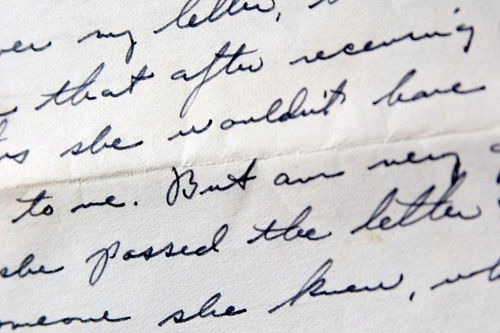 my letter,
that after receiving
she wouldn't have
to me. But am very
she passed the letter
she knew,